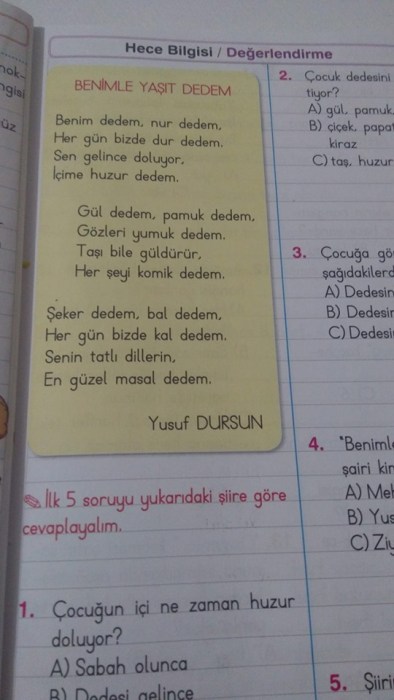 Hece Bilgisi / Değerlendirme
BENİMLE YAŞIT DEDEM
Benim dedem, nur dedem,
Her gün bizde dur dedem.
Sen gelince doluyor,
İçime huzur dedem.
Gül dedem, pamuk dedem,
Gözleri yumuk dedem.
Taşı bile güldürür,
Her şeyi komik dedem.
Şeker dedem, bal dedem,
Her gün bizde kal dedem.
Senin tatlı dillerin,
En güzel masal dedem.
Yusuf DURSUN
İlk 5 soruyu yukarıdaki şiire göre
cevaplayalım.
1. Çocuğun içi ne zaman huzur
doluyor?
A) Sabah olunca
B) Dedesi gelince
2. Çocuk dedesini
tiyor?
A) gül, pamuk,
B) çiçek, papat
kiraz
C) taş, huzur
3. Çocuğa gö
şağıdakilerd
A) Dedesin
B) Dedesin
C) Dedesi
4. "Benimle
şairi kim
A) Meh
B) Yus
C) Ziy
5. Şiiri